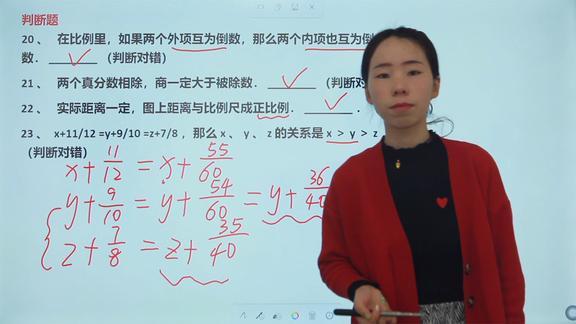 判断题
20 、 在比例里，如果两个外项互为倒数，那么两个内项也互为倒
数． ✓ （判断对错）
21 、 两个真分数相除，商一定大于被除数． ✓ （判断
22 、 实际距离一定，图上距离与比例尺成正比例． ✓ ．
23 、 x+11/12 =y+9/10 =z+7/8 ，那么 x 、 y 、 z 的关系是 x > y > z
（判断对错）
x + 11/12 = x + 55/60
y + 9/10 = y + 54/60 = y + 36/40
z + 7/8 = z + 35/40